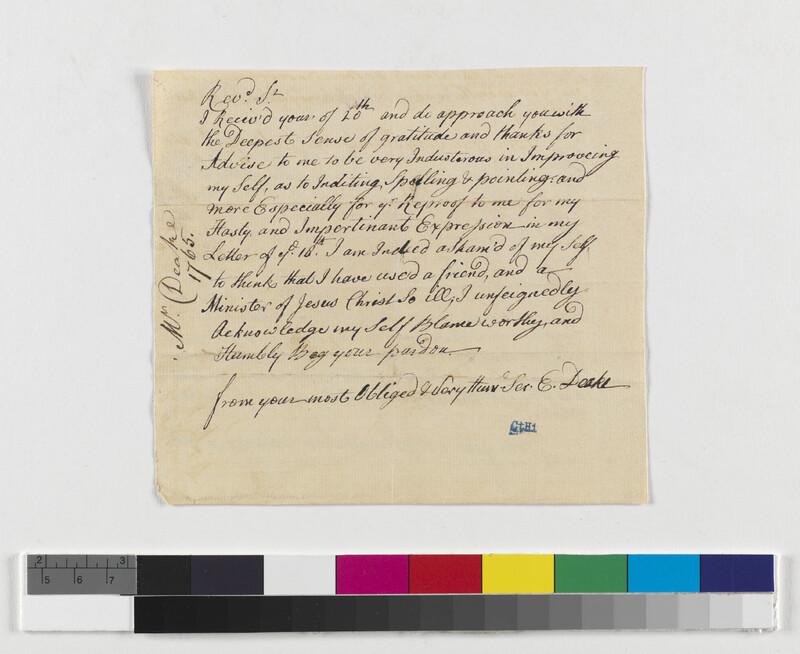 Rev.d S.r
I Receiv'd your of 20th and do approach you with
the Deepest Sense of gratitude and thanks for
Advise to me to be very Industerous in Improveing
my Self, as to Inditing, Spelling & pointing: and
more Especially for y.r Reproof to me for my
Hasty and Impertinant Expression in my
Letter of y.e 18th. I am Indeed asham'd of my Self
to think that I have used a friend, and a
Minister of Jesus Christ So ill; I unfeignedly
Acknowledge my Self Blame worthy, and
Humbly Beg your pardon
from your most Obliged & Very Hum.e Ser. E. Deake
Mr. Deake
1765.
CtHi
2 3
5 6 7